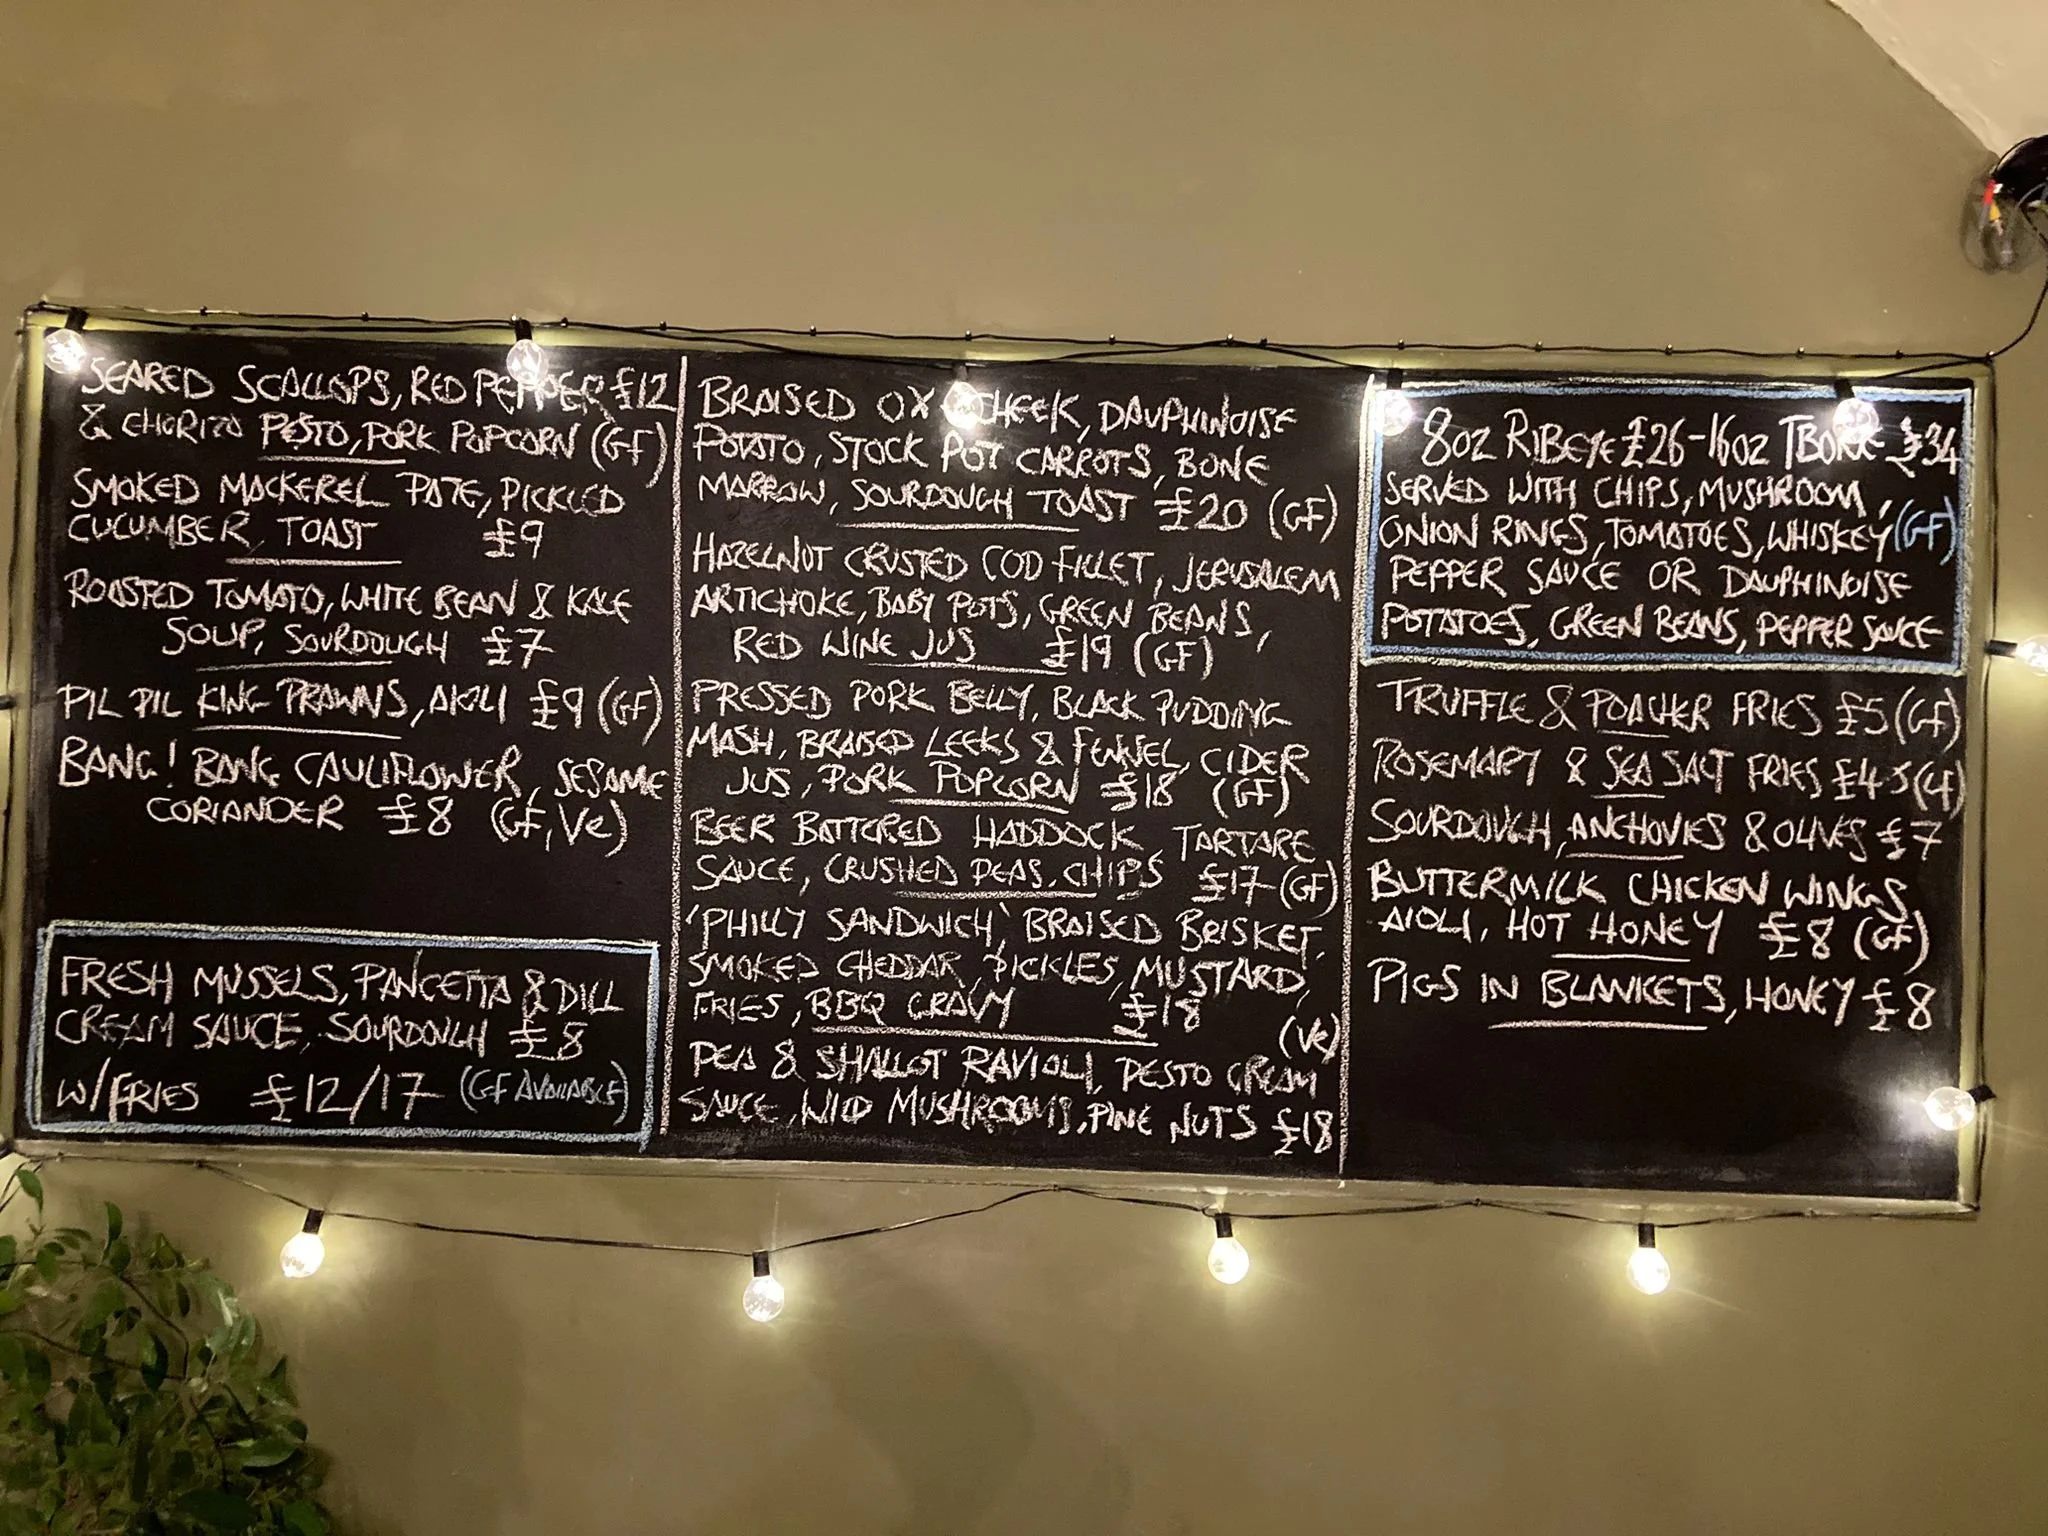 SEARED SCALLOPS, RED PEPPER £12
& CHORIZO PESTO, PORK POPCORN (GF)
SMOKED MACKEREL PATE, PICKLED
CUCUMBER, TOAST £9
ROASTED TOMATO, WHITE BEAN & KALE
SOUP, SOURDOUGH £7
PIL PIL KING PRAWNS, AIOLI £9 (GF)
BANG! BANG CAULIFLOWER, SESAME
CORIANDER £8 (GF, Ve)
FRESH MUSSELS, PANCETTA & DILL
CREAM SAUCE, SOURDOUGH £8
W/FRIES £12/17 (GF AVAILABLE)
BRAISED OX CHEEK, DAUPHINOISE
POTATO, STOCK POT CARROTS, BONE
MARROW, SOURDOUGH TOAST £20 (GF)
HAZELNUT CRUSTED COD FILLET, JERUSALEM
ARTICHOKE, BABY POTS, GREEN BEANS,
RED WINE JUS £19 (GF)
PRESSED PORK BELLY, BLACK PUDDING
MASH, BRAISED LEEKS & FENNEL, CIDER
JUS, PORK POPCORN £18 (GF)
BEER BATTERED HADDOCK TARTARE
SAUCE, CRUSHED PEAS, CHIPS £17 (GF)
'PHILLY SANDWICH', BRAISED BRISKET,
SMOKED CHEDDAR, PICKLES, MUSTARD,
FRIES, BBQ GRAVY £18
(Ve)
PEA & SHALLOT RAVIOLI, PESTO CREAM
SAUCE, WILD MUSHROOMS, PINE NUTS £18
8oz RIBEYE £26-16oz TBONE £34
SERVED WITH CHIPS, MUSHROOM,
ONION RINGS, TOMATOES, WHISKEY (GF)
PEPPER SAUCE OR DAUPHINOISE
POTATOES, GREEN BEANS, PEPPER SAUCE
TRUFFLE & POACHER FRIES £5 (GF)
ROSEMARY & SEA SALT FRIES £4.5 (GF)
SOURDOUGH, ANCHOVIES & OLIVES £7
BUTTERMILK CHICKEN WINGS
AIOLI, HOT HONEY £8 (GF)
PIGS IN BLANKETS, HONEY £8